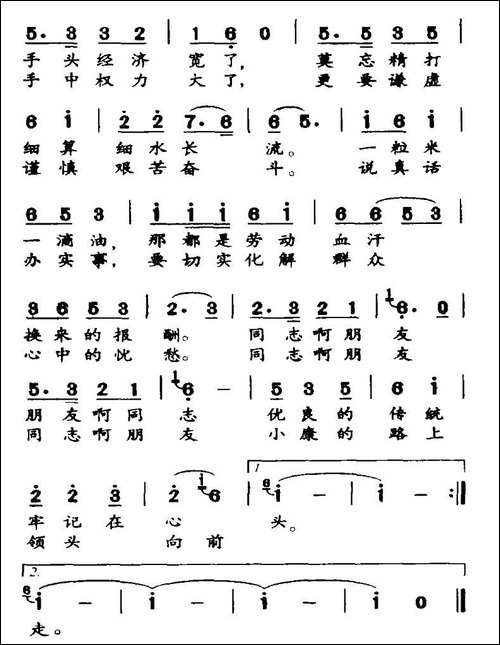 5. 3 3 2 | 1 6 0 | 5. 5 3 5 |
手头经济 宽了, 莫忘精打
手中权力 大了, 更要谦虚
6 i | 2 2 7. 6 | 6 5. | i 6 i |
细算 细水长 流。 一粒米
谨慎 艰苦奋 斗。 说真话
6 5 3 | i i i 6 i | 6 6 5 3 |
一滴油, 那都是劳动 血汗
办实事, 要切实化解 群众
3 6 5 3 | 2. 3 | 2. 3 2 1 | 1 6. 0 |
换来的报 酬。 同志啊朋 友
心中的忧 愁。 同志啊朋 友
5. 3 2 1 | 1 6 – | 5 3 5 | 6 i |
朋友啊同 志 优良的 传统
同志啊朋 友 小康的 路上
2 2 3 | 2 i 6 | 1. 6 i – | i – :||
牢记在 心 头。
领头 向前
2. 6 i – | i – | i – | i 0 ||
走。